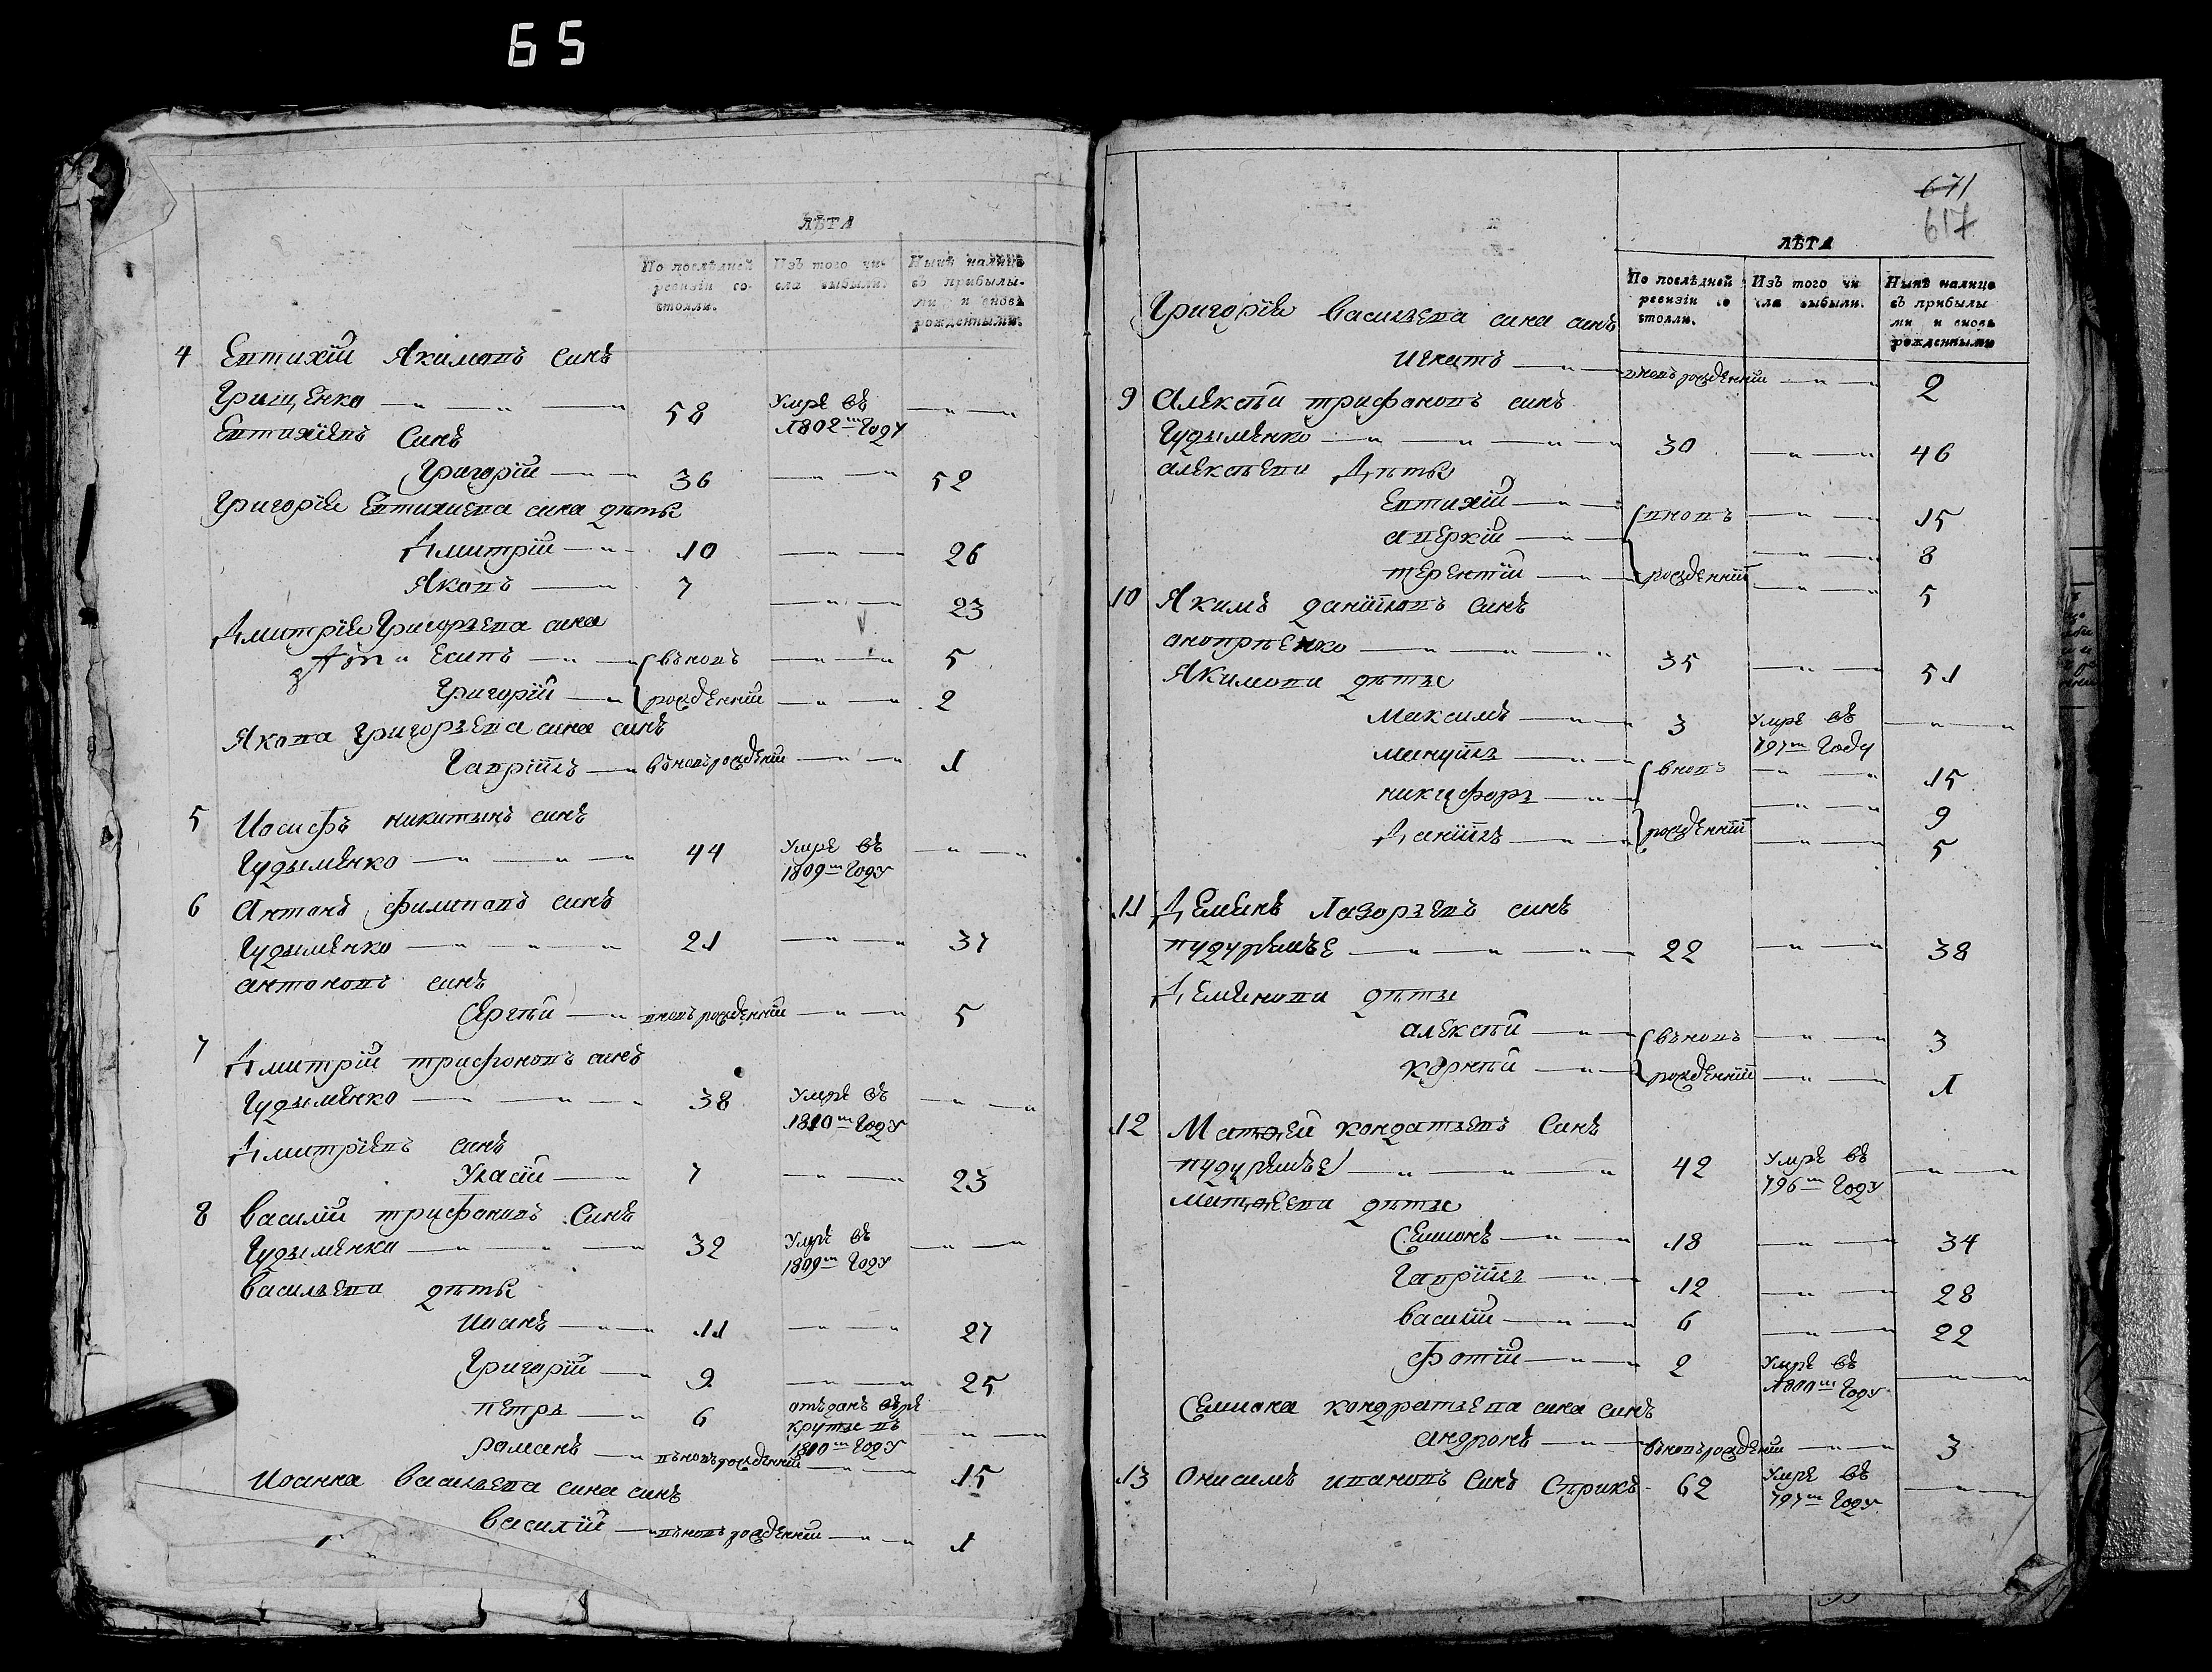 65
ЛѢТА
По послѣдней ревизіи состояли.
Изъ того числа выбыли.
Нынѣ налицо съ прибылыми и вновь рожденными.
4 Евтихій Якимовъ синъ
Грищенко 58 Умре въ 1802м Году
Евтихіевъ Синъ
Григорій 36 52
Григорія Евтихиева сина дѣти
Дмитрій 10 26
Яковъ 7 23
Дмитрія Григорьева сина
дѣти Есипъ вѣновъ 5
Григорій рожденній 2
Якова Григорьева сина синъ
Гавріилъ вѣновъ рожденій 1
5 Иосифъ никитинъ синъ
Гудыменко 44 Умре въ 1809м Году
6 Антонъ филиповъ синъ
Гудыменко 21 37
антоновъ синъ
Сергѣй вновь рожденній 5
7 Дмитрій трифоновъ синъ
Гудыменко 38 Умре въ 1810м Году
Дмитріевъ синъ
Уласій 7 23
8 Василій трифоновъ Синъ
Гудыменко 32 Умре въ 1809м Году
Васильеви дѣти
Иоанъ 11 27
Григорій 9 25
петръ 6 отъданъ въ рекруты въ 1810м Году
романъ вѣновъ рожденній 15
Иоанна Васильева сина синъ
Василій вѣновъ рожденній 1
671
617
ЛѢТА
По послѣдней ревизіи состояли.
Изъ того числа выбыли.
Нынѣ налицо съ прибылыми и вновь рожденными
Григорія Васильева сина синъ
Игнатъ вновъ рожденній 2
9 Алексѣй трифоновъ синъ
Гудыменко 30 46
алексѣеви Дѣти
Евтихій вновъ 15
аверкій 8
терентій рожденній 5
10 Якимъ даніиловъ синъ
анопрѣенко 35 51
Якимови дѣти
Максимъ 3 Умре въ 797м Году
мануилъ вновъ 15
никифоръ 9
Даніилъ рожденній 5
11 Демянъ Лазорьевъ синъ
пудурѣмъе 22 38
Демянови дѣти
алексѣй вѣновъ 3
корнѣй рожденній 1
12 Матѳей кондатьевъ Синъ
пудурѣмъе 42 Умре въ 796м Году
матѳееви дѣти
Семионъ 18 34
Гавріилъ 12 28
василій 6 22
Фотій 2 Умре въ 1800м Году
Семиона кондратьева сина синъ
андронъ вѣновъ рожденій 3
13 Онисимъ ивановъ Синъ Стрикъ 62 Умре въ 797м Году